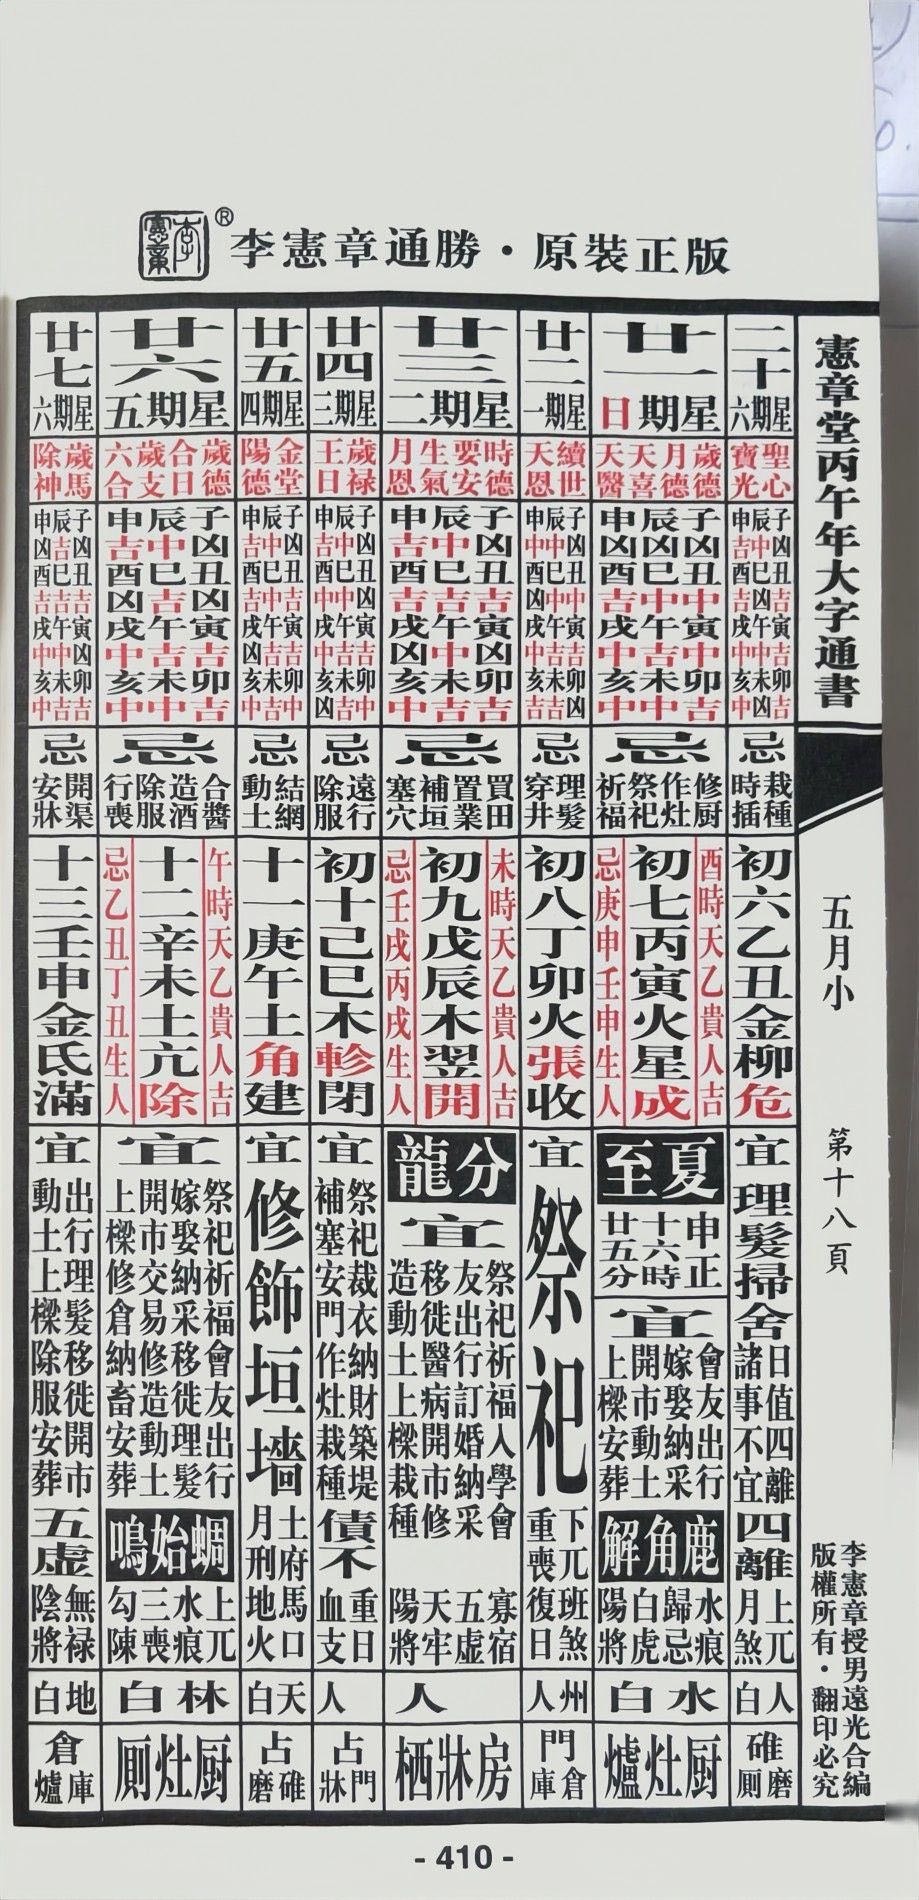 李憲章
®
李憲章通勝・原裝正版
憲章堂丙午年大字通書
五月小
第十八頁
李憲章授男遠光合編
版權所有・翻印必究
二十
星期六
聖心
寶光
子凶丑吉寅吉卯吉
辰中巳凶午凶未凶
申吉酉吉戌中亥中
忌
栽種
時插
初六乙丑金柳危
宜
理髮掃舍
日值四離
諸事不宜
四離
上兀
月煞
人白
碓磨
厠
廿一
星期日
歲德
月德
天喜
天醫
子凶丑中寅中卯吉
辰凶巳中午吉未中
申凶酉吉戌中亥中
忌
修厨
作灶
祭祀
祈福
酉時天乙貴人吉
初七丙寅火星成
忌庚申壬申生人
夏至
申正
十六時
廿五分
宜
會友出行
嫁娶納采
開市動土
上樑安葬
鹿角解
水痕
歸忌
白虎
陽將
水白
厨灶爐
廿二
星期一
續世
天恩
子凶丑中寅吉卯凶
辰中巳中午吉未吉
申中酉凶戌中亥吉
忌
理髮
穿井
初八丁卯火張收
宜
祭祀
下兀班煞
重喪復日
州人
門倉
庫
廿三
星期二
時德
要安
生氣
月恩
子凶丑吉寅凶卯吉
辰中巳吉午中未吉
申吉酉吉戌凶亥中
忌
買田
置業
補垣
塞穴
未時天乙貴人吉
初九戊辰木翌開
忌壬戌丙戌生人
分龍
宜
祭祀祈福入學會
友出行訂婚納采
移徙醫病開市修
造動土上樑栽種
寡宿
五虛
天牢
陽將
人
房牀栖
廿四
星期三
歲禄
王日
子凶丑凶寅吉卯中
辰中巳中午吉未吉
申中酉中戌中亥凶
忌
遠行
除服
初十己巳木軫閉
宜
祭祀裁衣納財築堤
補塞安門作灶栽種
債不
重日
血支
人
占門
牀
廿五
星期四
金堂
陽德
子凶丑吉寅吉卯中
辰中巳中午吉未吉
申吉酉吉戌凶亥中
忌
結網
動土
十一庚午土角建
宜
修飾垣墻
土府馬口
月刑地火
天白
占碓
磨
廿六
星期五
歲德
合日
歲支
六合
子凶丑凶寅吉卯吉
辰中巳吉午吉未中
申吉酉凶戌中亥中
忌
合醬
造酒
除服
行喪
午時天乙貴人吉
十二辛未土亢除
忌乙丑丁丑生人
宜
祭祀祈福會友出行
嫁娶納采移徙理髮
開市交易修造動土
上樑修倉納畜安葬
蜩始鳴
上兀
水痕
三喪
勾陳
林白
厨灶厠
廿七
星期六
歲馬
除神
子凶丑吉寅凶卯吉
辰吉巳吉午中未吉
申凶酉吉戌中亥中
忌
開渠
安牀
十三壬申金氐滿
宜
出行理髮移徙開市
動土上樑除服安葬
五虛
無禄
陰將
地白
倉庫
爐
- 410 -